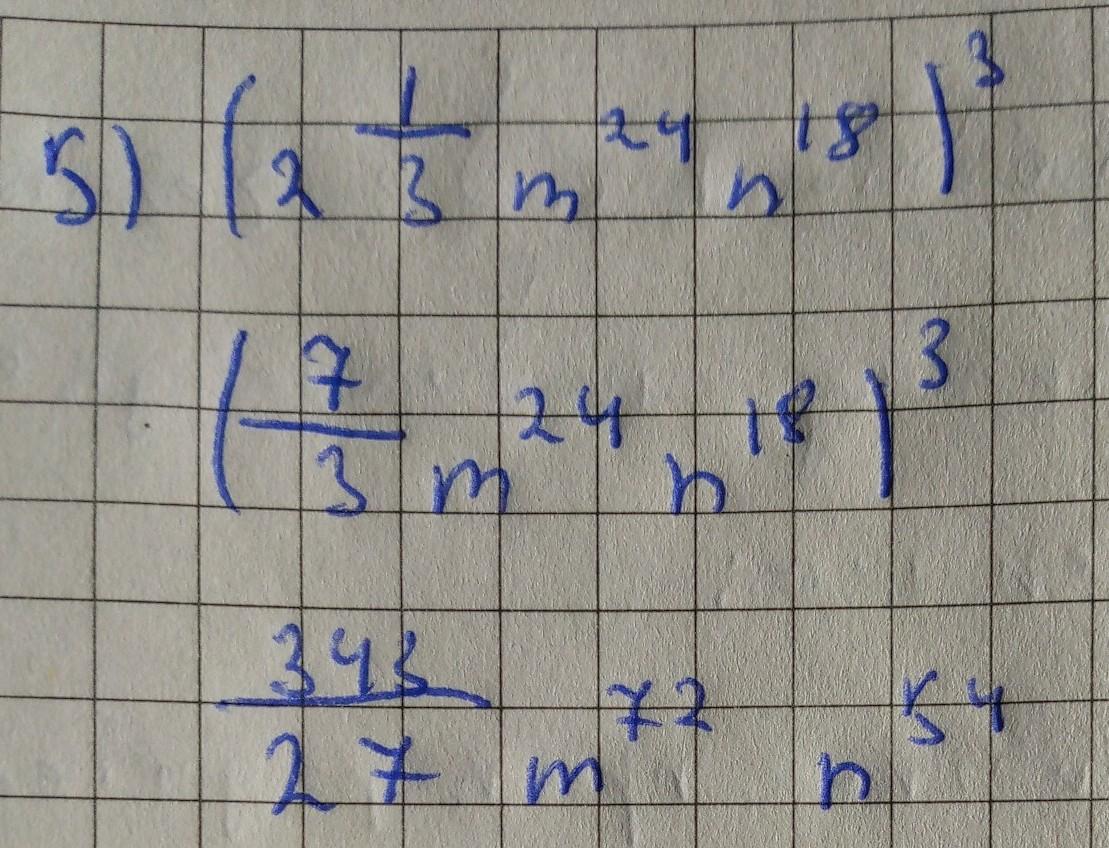 5) (2 1/3 m^24 n^18)^3
(7/3 m^24 n^18)^3
343/27 m^72 n^54